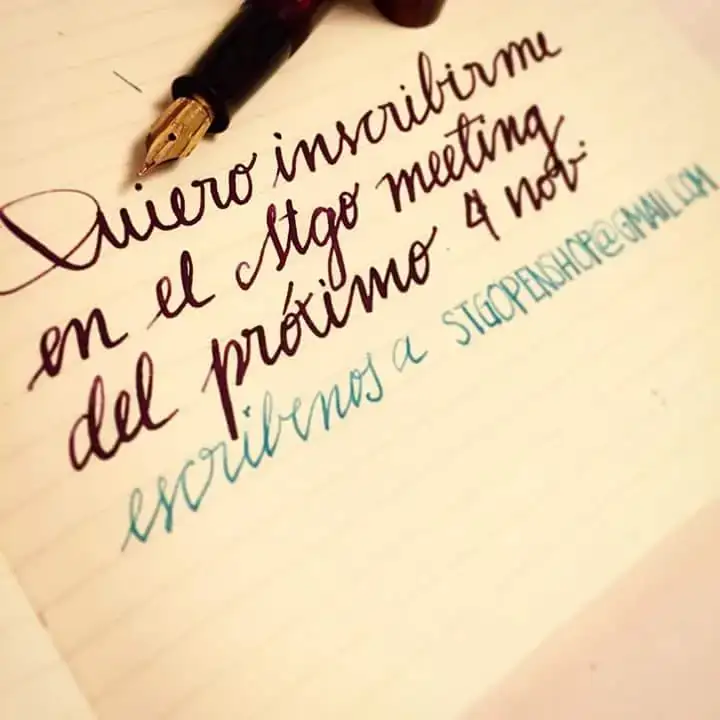 Quiero inscribirme
en el Stgo meeting
del próximo 4 nov.
escríbenos a STGOPENSHOP@GMAIL.COM